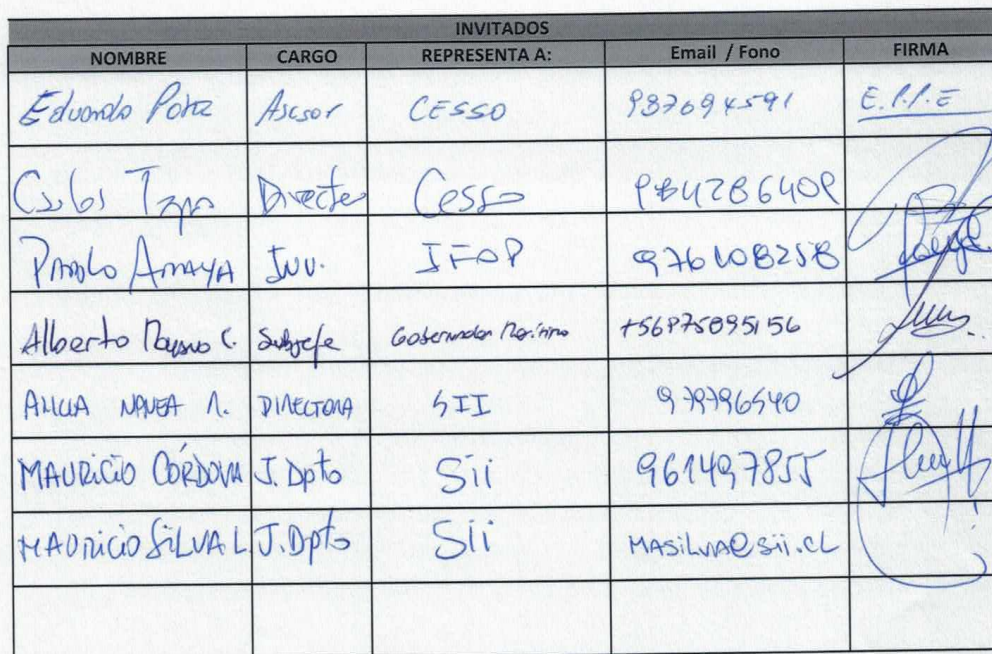 INVITADOS
NOMBRE CARGO REPRESENTA A: Email / Fono FIRMA
Eduardo Asesor CESSO 987694591 E.P.P.E
Director Cesso
PABLO AMAYA INV. IFOP 976108258
Alberto C. Subjefe +56975895156
ALICIA M. DIRECTORA SII 979796540
MAURICIO CÓRDOVA J. Dpto Sii 961497855
MAURICIO SILVA L J. Dpto Sii MASILVA@Sii.CL